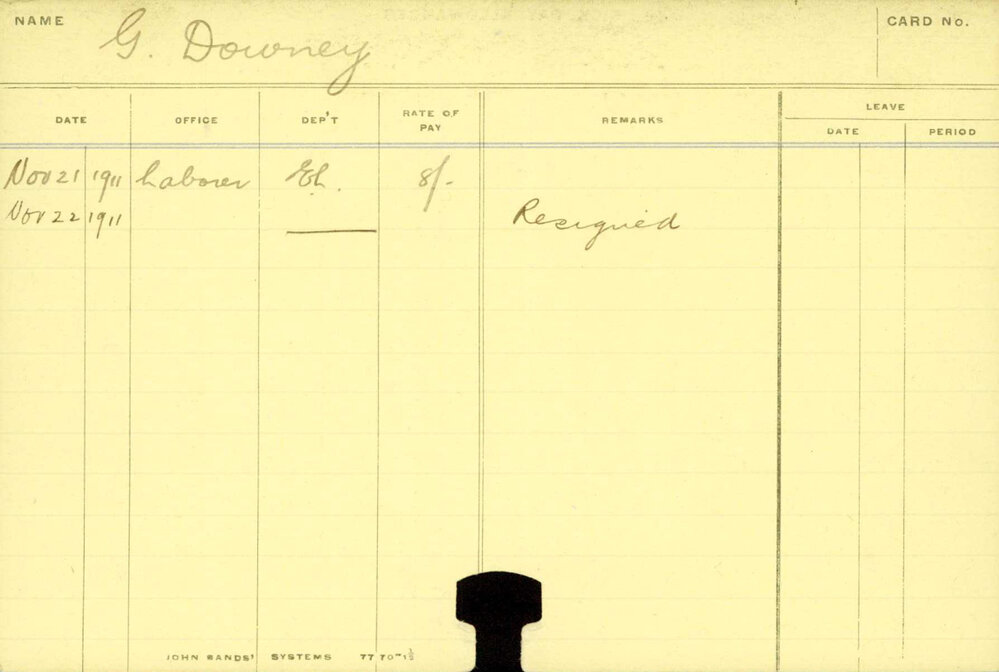 NAME G. Downey CARD No.
LEAVE
DATE OFFICE DEP'T RATE OF PAY REMARKS DATE PERIOD
Nov 21 1911 Laborer 8/-
Nov 22 1911 Resigned
JOHN SANDS' SYSTEMS